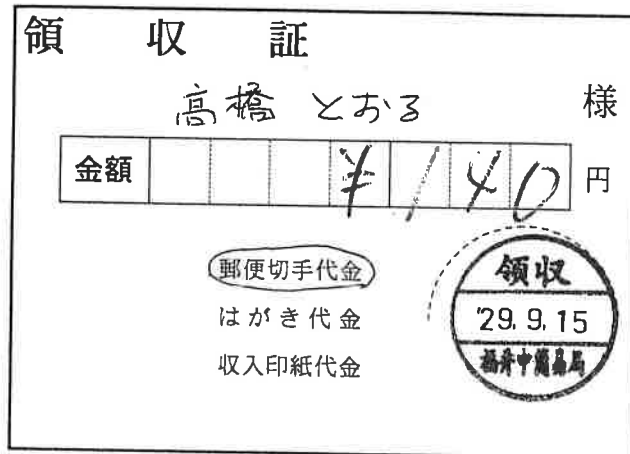 領収証
高橋 とおる 様
金額 ¥140 円
郵便切手代金
はがき代金
収入印紙代金
領収
'29.9.15
福井中簡易局